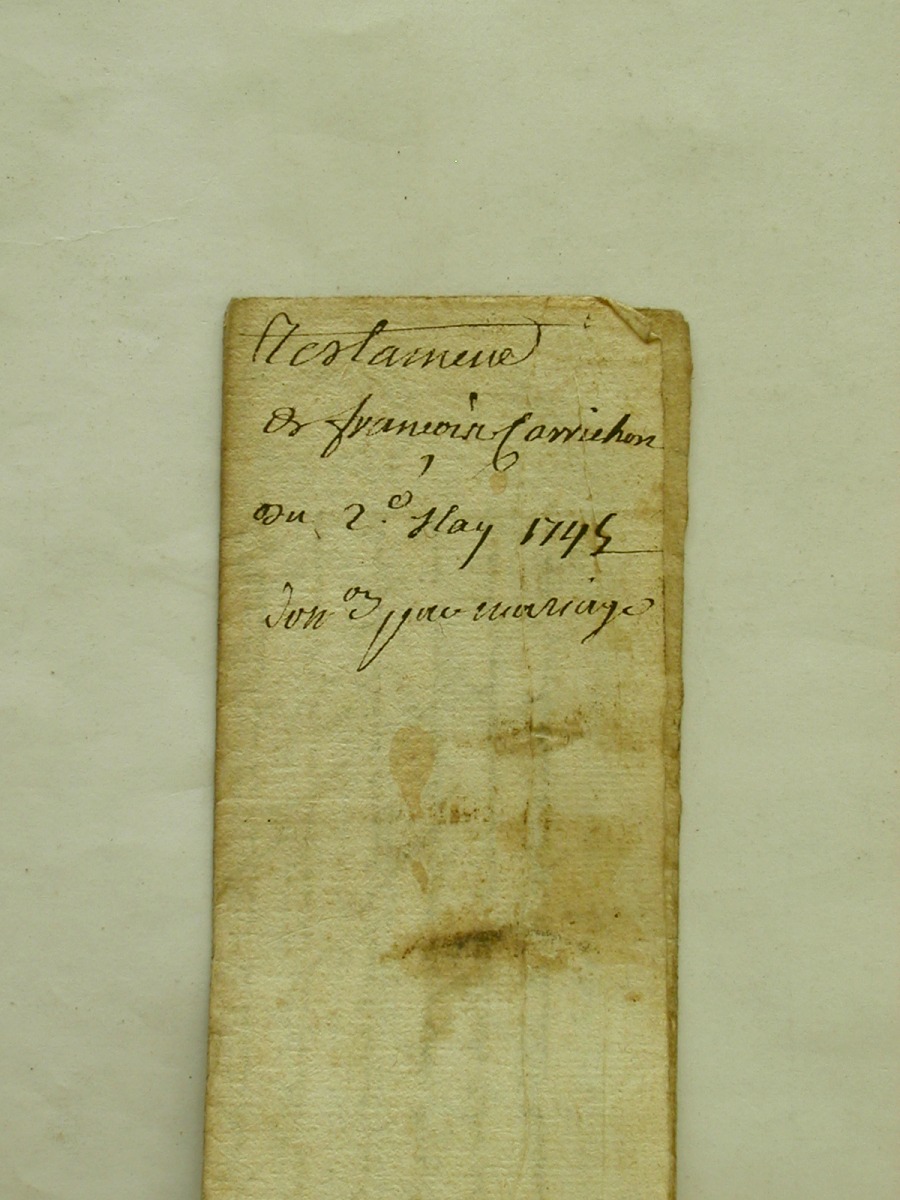 Testament
de francois Carrichon
du 2e May 1745
Don on par mariage